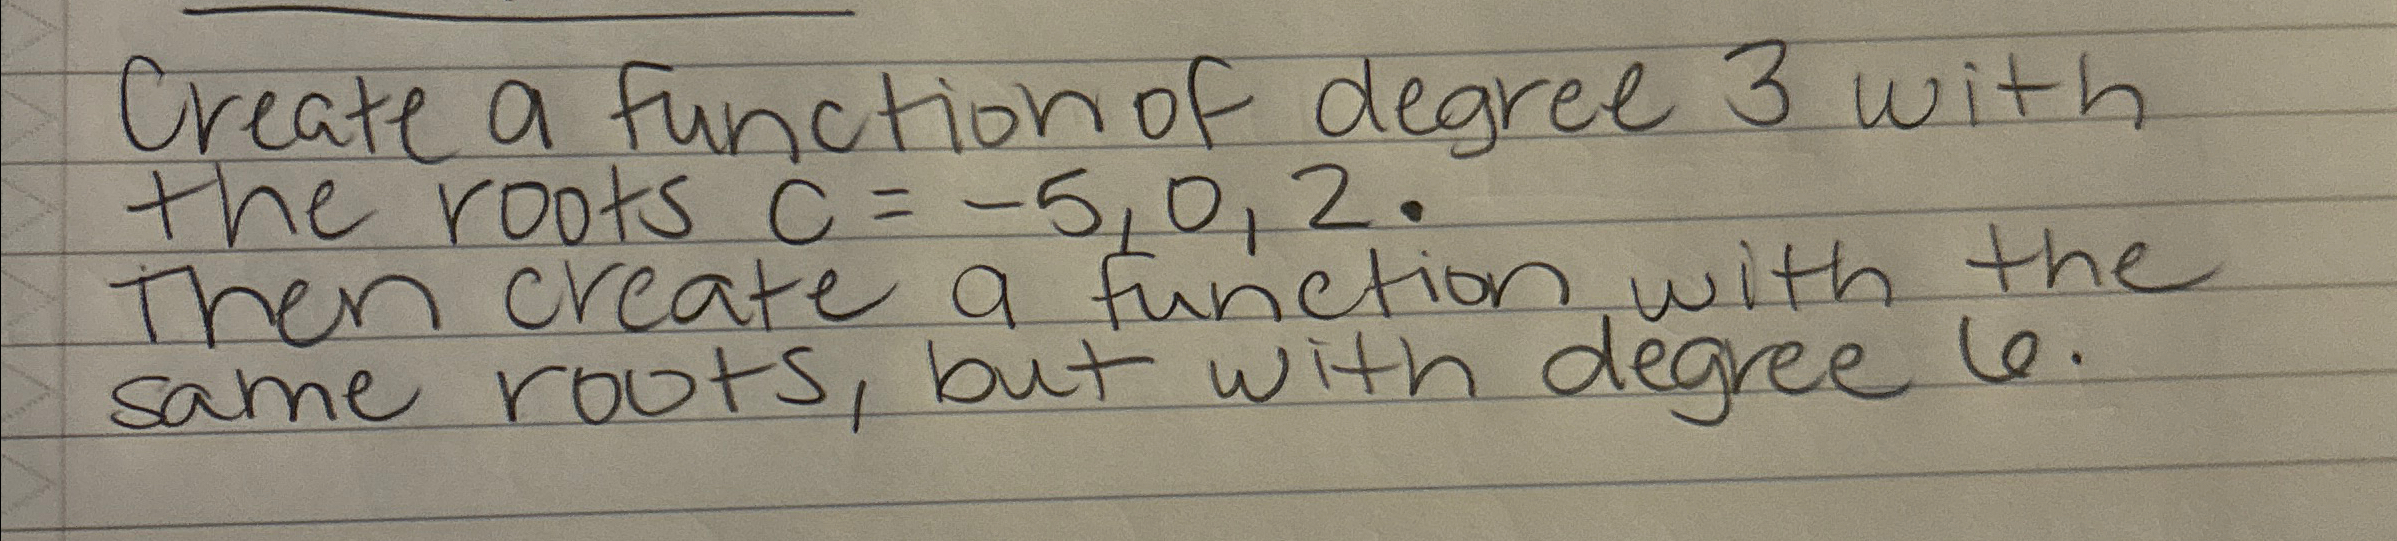 Create a function of degree 3 with
the roots c = -5, 0, 2.
Then create a function with the
same roots, but with degree 6.